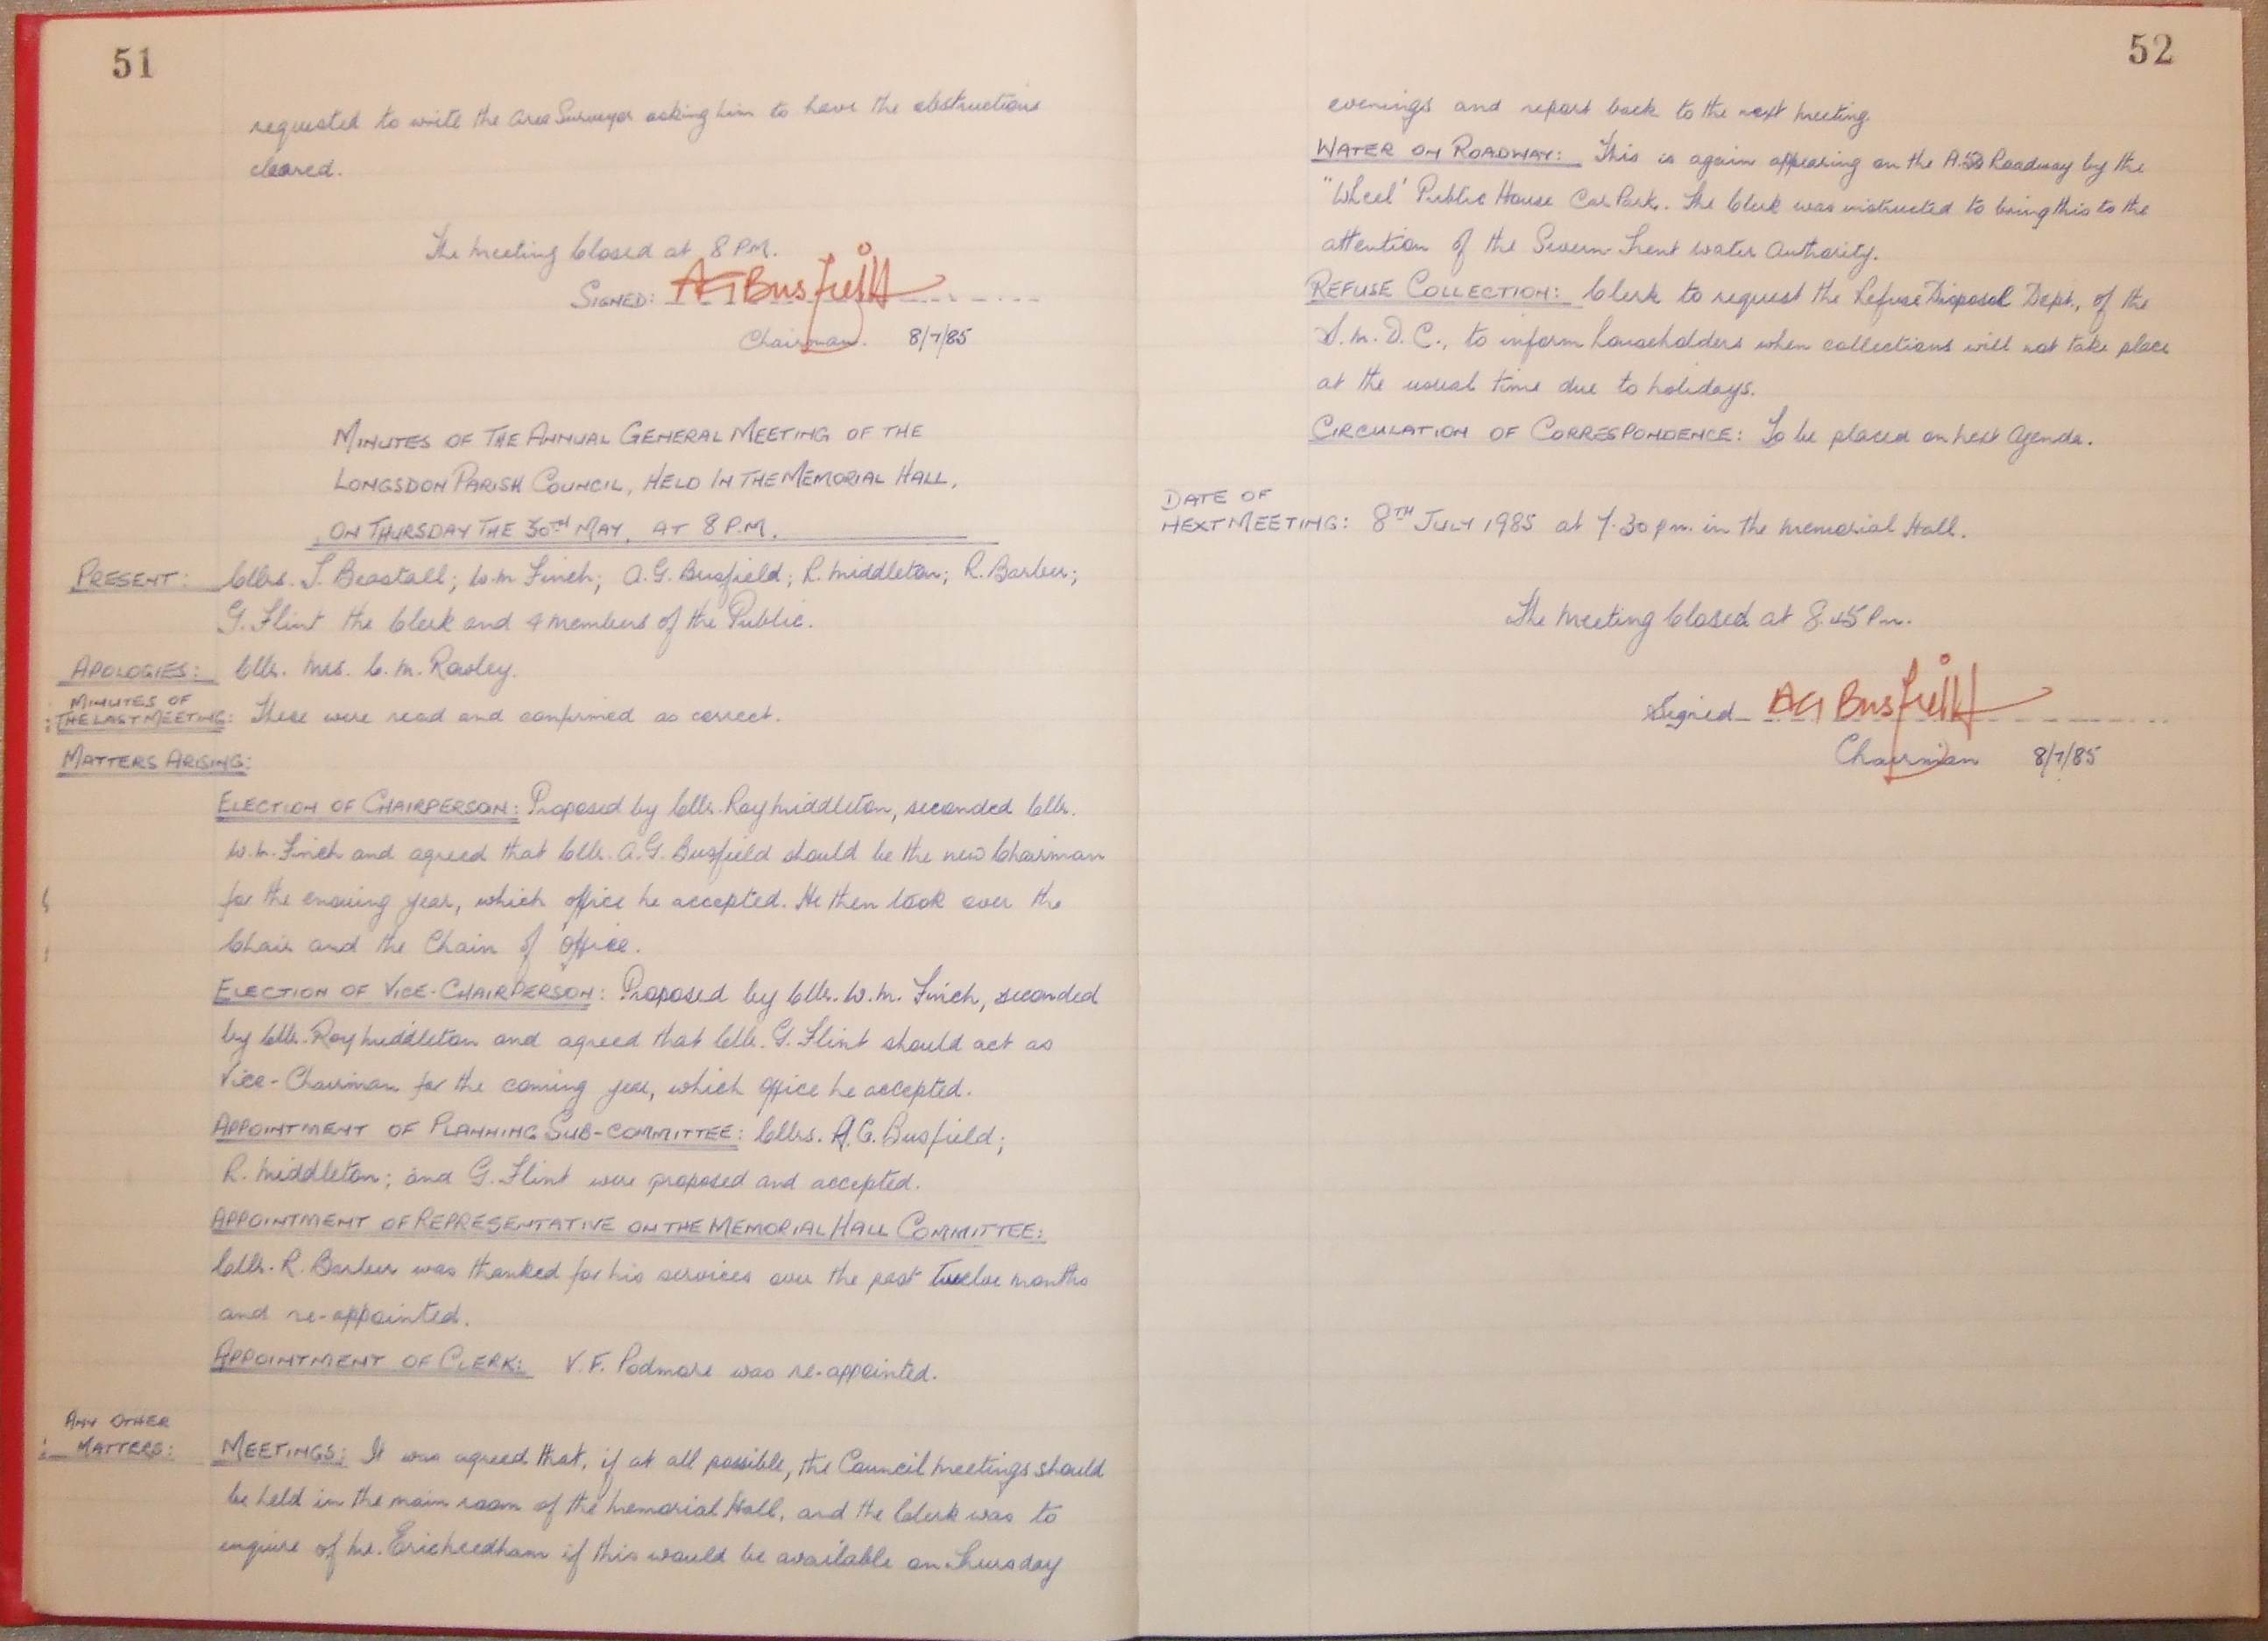 51
requested to write the Area Surveyor asking him to have the obstructions
cleared.
The Meeting Closed at 8 P.M.
SIGNED: AG Busfield
Chairman. 8/7/85
MINUTES OF THE ANNUAL GENERAL MEETING OF THE
LONGSDON PARISH COUNCIL, HELD IN THE MEMORIAL HALL,
ON THURSDAY THE 30TH MAY, AT 8 P.M.
PRESENT: Cllrs. J. Beastall; W.M. Finch; A.G. Busfield; R. Middleton; R. Barber;
G. Flint the Clerk and 4 members of the Public.
APOLOGIES: Cllr. Mrs. C. M. Rowley.
MINUTES OF
THE LAST MEETING: These were read and confirmed as correct.
MATTERS ARISING:
ELECTION OF CHAIRPERSON: Proposed by Cllr. Roy Middleton, seconded Cllr.
W.M. Finch and agreed that Cllr. A.G. Busfield should be the new Chairman
for the ensuing year, which office he accepted. He then took over the
Chair and the Chain of office.
ELECTION OF VICE-CHAIRPERSON: Proposed by Cllr. W.M. Finch, seconded
by Cllr. Roy Middleton and agreed that Cllr. G. Flint should act as
Vice-Chairman for the coming year, which office he accepted.
APPOINTMENT OF PLANNING SUB-COMMITTEE: Cllrs. A.G. Busfield;
R. Middleton; and G. Flint were proposed and accepted.
APPOINTMENT OF REPRESENTATIVE ON THE MEMORIAL HALL COMMITTEE:
Cllr. R. Barber was thanked for his services over the past twelve months
and re-appointed.
APPOINTMENT OF CLERK: V.F. Podmore was re-appointed.
ANY OTHER
MATTERS: MEETINGS: It was agreed that, if at all possible, the Council Meetings should
be held in the main room of the Memorial Hall, and the Clerk was to
enquire of Mr. Eric Needham if this would be available on Thursday
52
evenings and report back to the next meeting.
WATER ON ROADWAY: This is again appearing on the A.53 Roadway by the
"Wheel' Public House Car Park. The Clerk was instructed to bring this to the
attention of the Severn-Trent Water Authority.
REFUSE COLLECTION: Clerk to request the Refuse Disposal Dept., of the
S.M.D.C., to inform householders when collections will not take place
at the usual time due to holidays.
CIRCULATION OF CORRESPONDENCE: To be placed on next Agenda.
DATE OF
NEXT MEETING: 8TH JULY 1985 at 7.30 p.m. in the Memorial Hall.
The Meeting Closed at 8.45 P.m.
Signed AG Busfield
Chairman 8/7/85